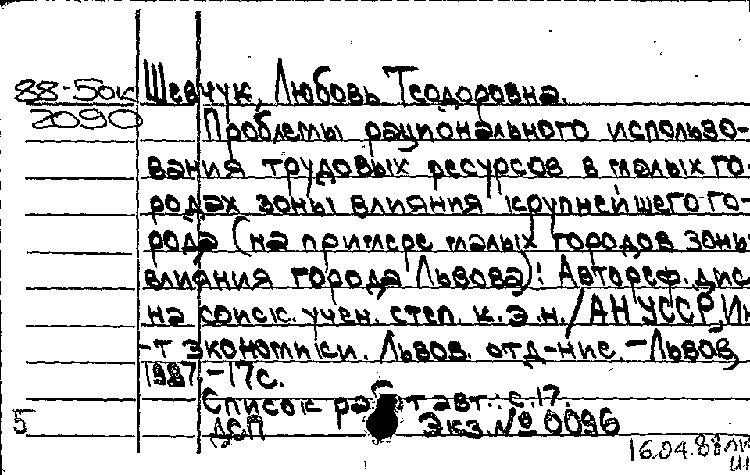 88-50к Шевчук, Любовь Теодоровна.
2090 Проблемы рационального использо-
вания трудовых ресурсов в малых го-
родах зоны влияния крупнейшего го-
рода (на примере малых городов зоны
влияния города Львова): Автореф. дис.
на соиск. учен. степ. к.э.н. / АН УССР, Ин
-т экономики. Львов. отд-ние. - Львов,
1987. - 17с.
Список работ авт.: с.17.
5 ДСП Экз. № 0096
16.04.88